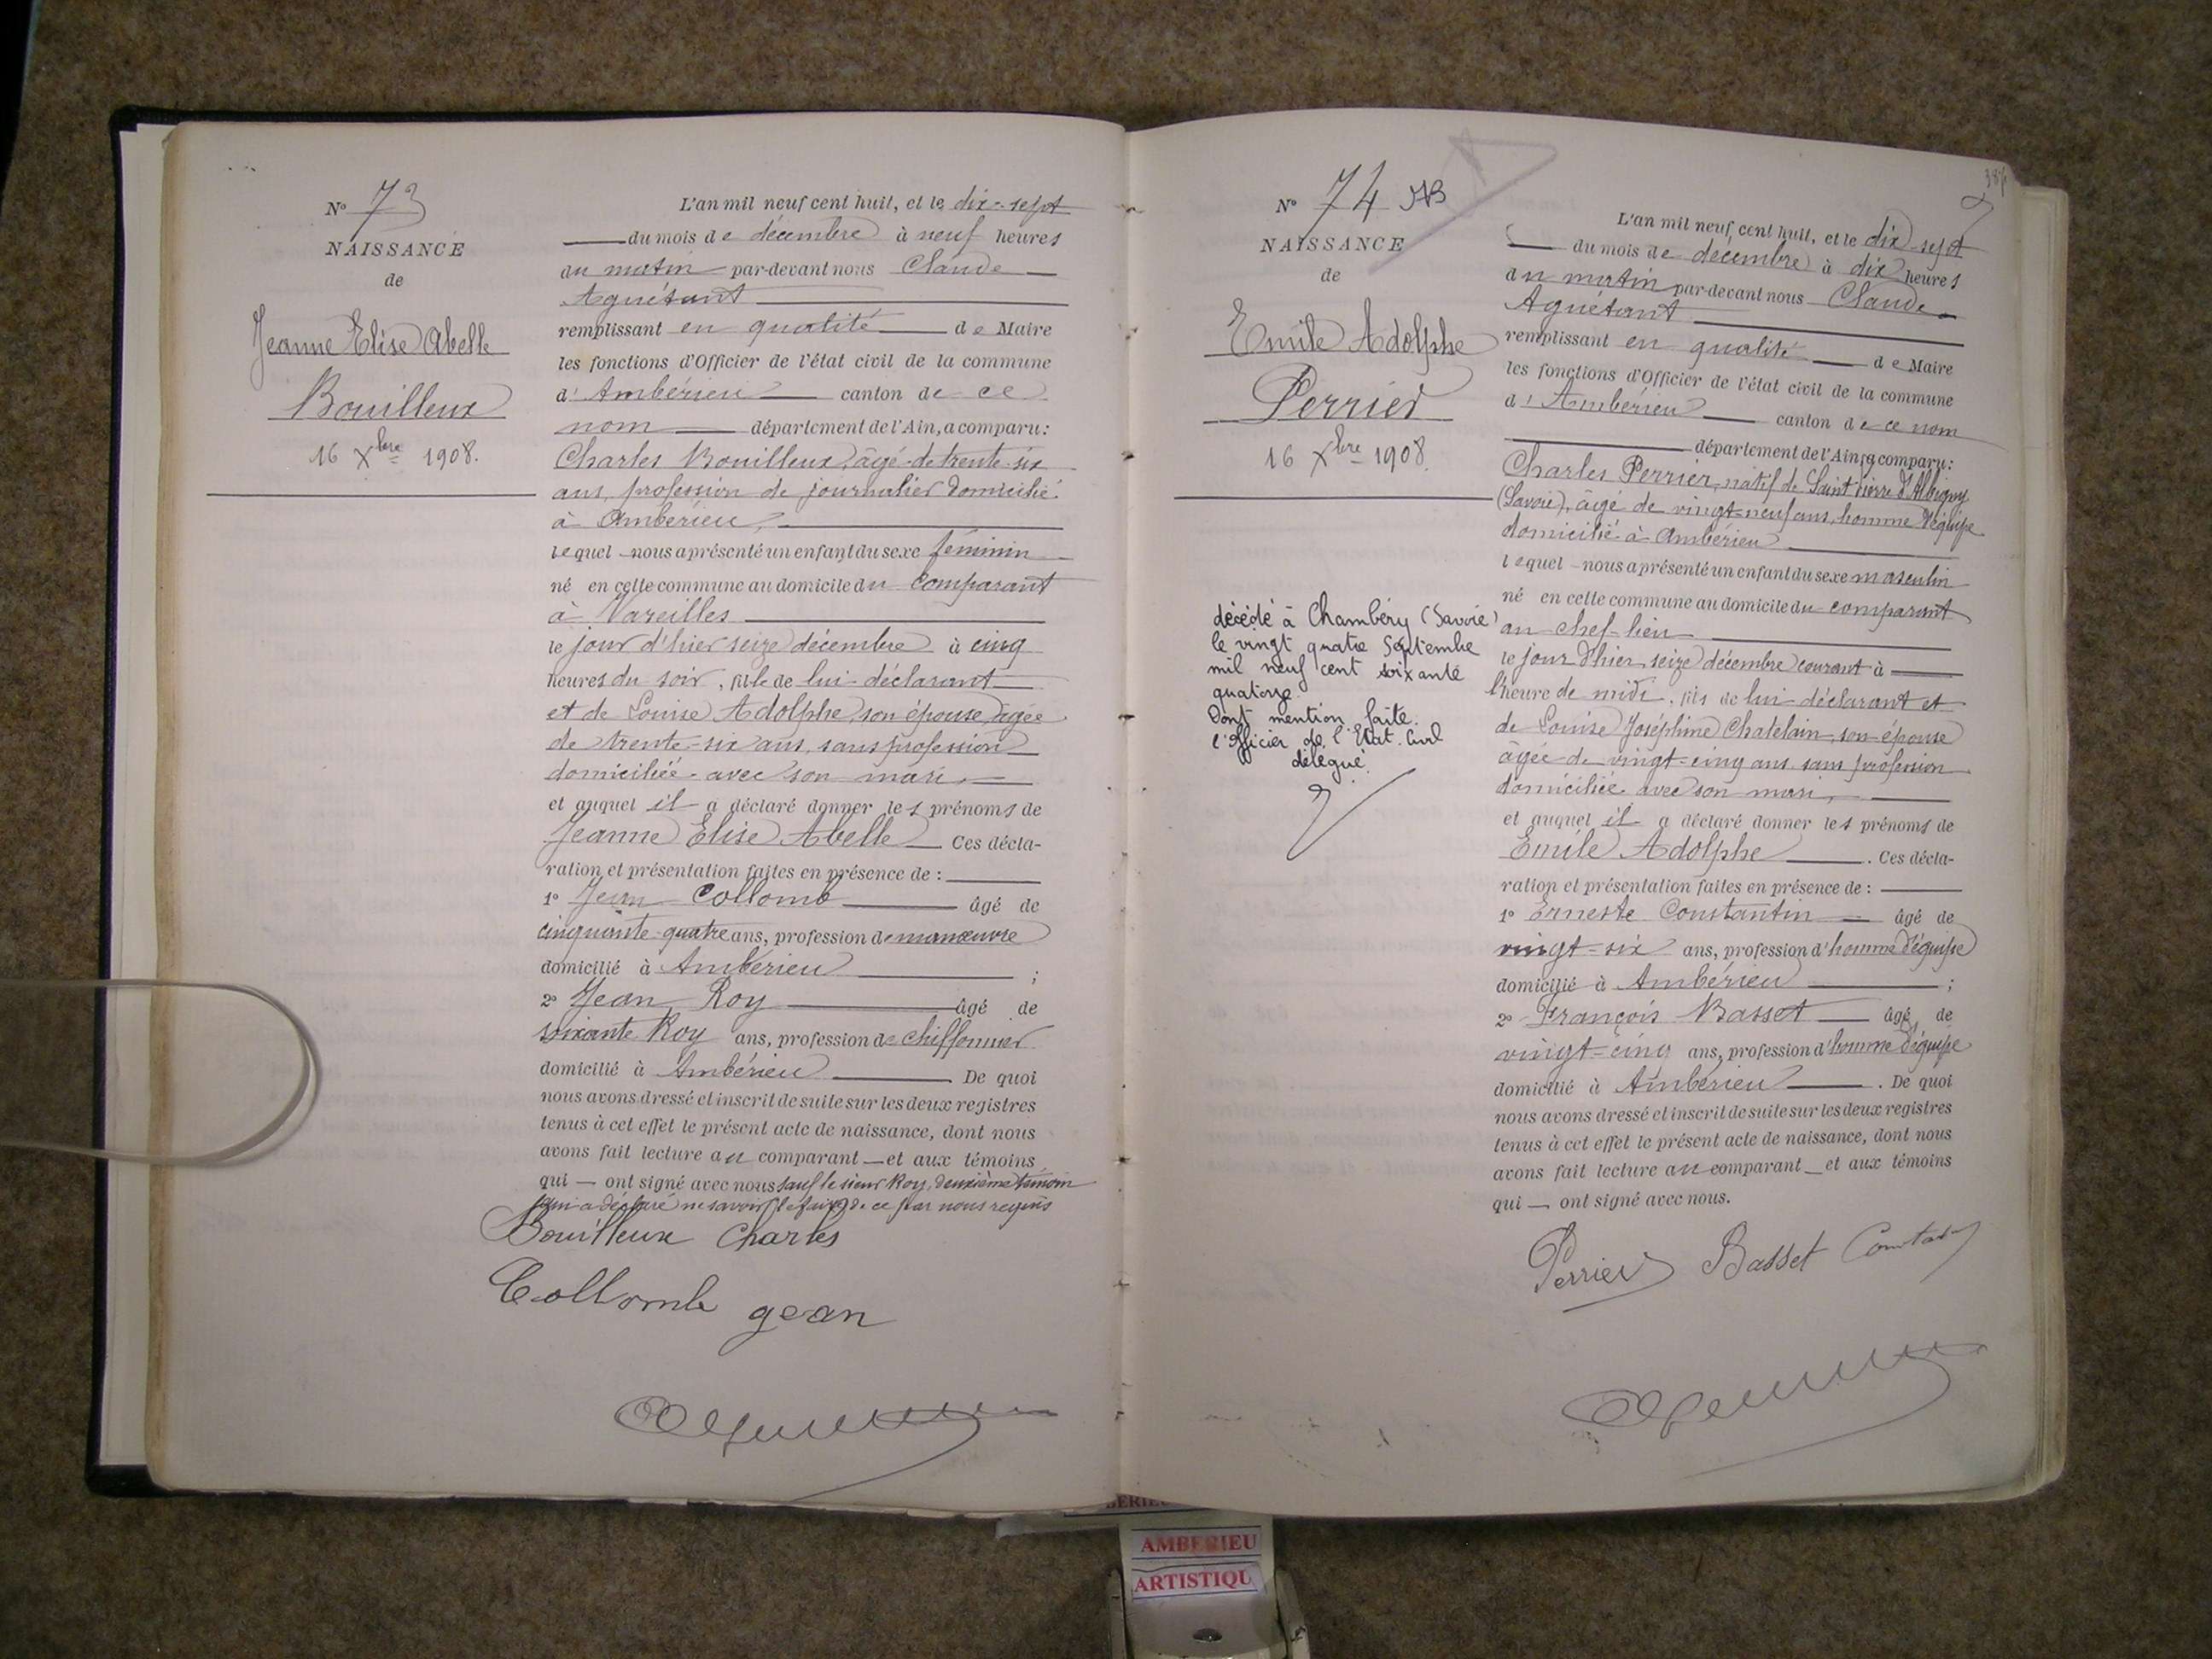 N° 73
NAISSANCE
de
Jeanne Elise Abelle
Bouilleux
16 Xbre 1908.
L'an mil neuf cent huit, et le dix-sept
du mois de décembre à neuf heures
du matin par-devant nous Claude
Aguétant
remplissant en qualité de Maire
les fonctions d'Officier de l'état civil de la commune
d'Ambérieu canton de ce
nom département de l'Ain, a comparu :
Charles Bouilleux, âgé de trente-six
ans, profession de journalier domicilié
à Ambérieu,
lequel nous a présenté un enfant du sexe féminin
né en cette commune au domicile du comparant
à Vareilles
le jour d'hier seize décembre à cinq
heures du soir, fille de lui déclarant
et de Louise Adolphe, son épouse, âgée
de trente-six ans, sans profession
domiciliée avec son mari,
et auquel il a déclaré donner les prénoms de
Jeanne Elise Abelle Ces décla-
ration et présentation faites en présence de :
1° Jean Collomb âgé de
cinquante-quatre ans, profession de manœuvre
domicilié à Ambérieu ;
2° Jean Roy âgé de
soixante Roy ans, profession de chiffonnier
domicilié à Ambérieu De quoi
nous avons dressé et inscrit de suite sur les deux registres
tenus à cet effet le présent acte de naissance, dont nous
avons fait lecture au comparant et aux témoins
qui ont signé avec nous sauf le sieur Roy, deuxième témoin
qui a déclaré ne savoir le faire de ce par nous requis
Bouilleux Charles
Collomb gean
N° 74
NAISSANCE
de
Emile Adolphe
Perrier
16 Xbre 1908.
décédé à Chambéry (Savoie)
le vingt quatre Septembre
mil neuf cent soixante
quatorze.
Dont mention faite.
l'Officier de l'Etat Civil
délégué.
L'an mil neuf cent huit, et le dix-sept
du mois de décembre à dix heures
du matin par-devant nous Claude
Aguétant
remplissant en qualité de Maire
les fonctions d'Officier de l'état civil de la commune
d'Ambérieu canton de ce nom
département de l'Ain, a comparu :
Charles Perrier, natif de Saint Pierre d'Albigny
(Savoie), âgé de vingt-neuf ans, homme d'équipe
domicilié à Ambérieu
lequel nous a présenté un enfant du sexe masculin
né en cette commune au domicile du comparant
au chef-lieu
le jour d'hier seize décembre courant à
l'heure de midi, fils de lui déclarant et
de Louise Joséphine Chatelain, son épouse
âgée de vingt-cinq ans sans profession
domiciliée avec son mari,
et auquel il a déclaré donner les prénoms de
Emile Adolphe. Ces décla-
ration et présentation faites en présence de :
1° Erneste Constantin âgé de
vingt-six ans, profession d'homme d'équipe
domicilié à Ambérieu ;
2° François Basset âgé de
vingt-cinq ans, profession d'homme d'équipe
domicilié à Ambérieu. De quoi
nous avons dressé et inscrit de suite sur les deux registres
tenus à cet effet le présent acte de naissance, dont nous
avons fait lecture au comparant et aux témoins
qui ont signé avec nous.
Perrier Basset
AMBERIEU
ARTISTIQU